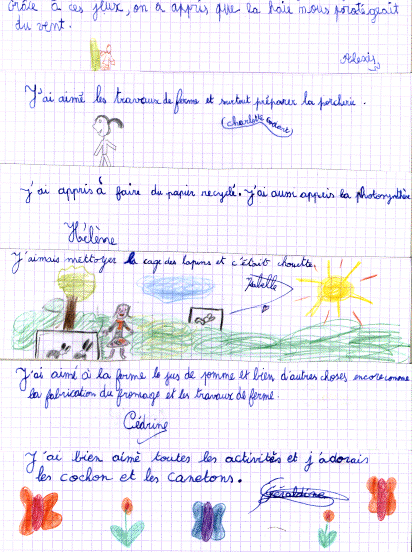 Grâce à ces jeux, on a appris que la haie nous protégeait
du vent.
Alexis
J'ai aimé les travaux de ferme et surtout préparer la porcherie.
(Charlotte
J'ai appris à faire du papier recyclé. J'ai aussi appris la photosynthèse
Hélène
J'aimais nettoyer la cage des lapins et c'était chouette.
J'ai aimé à la ferme le jus de pomme et bien d'autres choses encore comme
la fabrication du fromage et les travaux de ferme.
Cédrine
J'ai bien aimé toutes les activités et j'adorais
les cochon et les canetons.
Géraldine